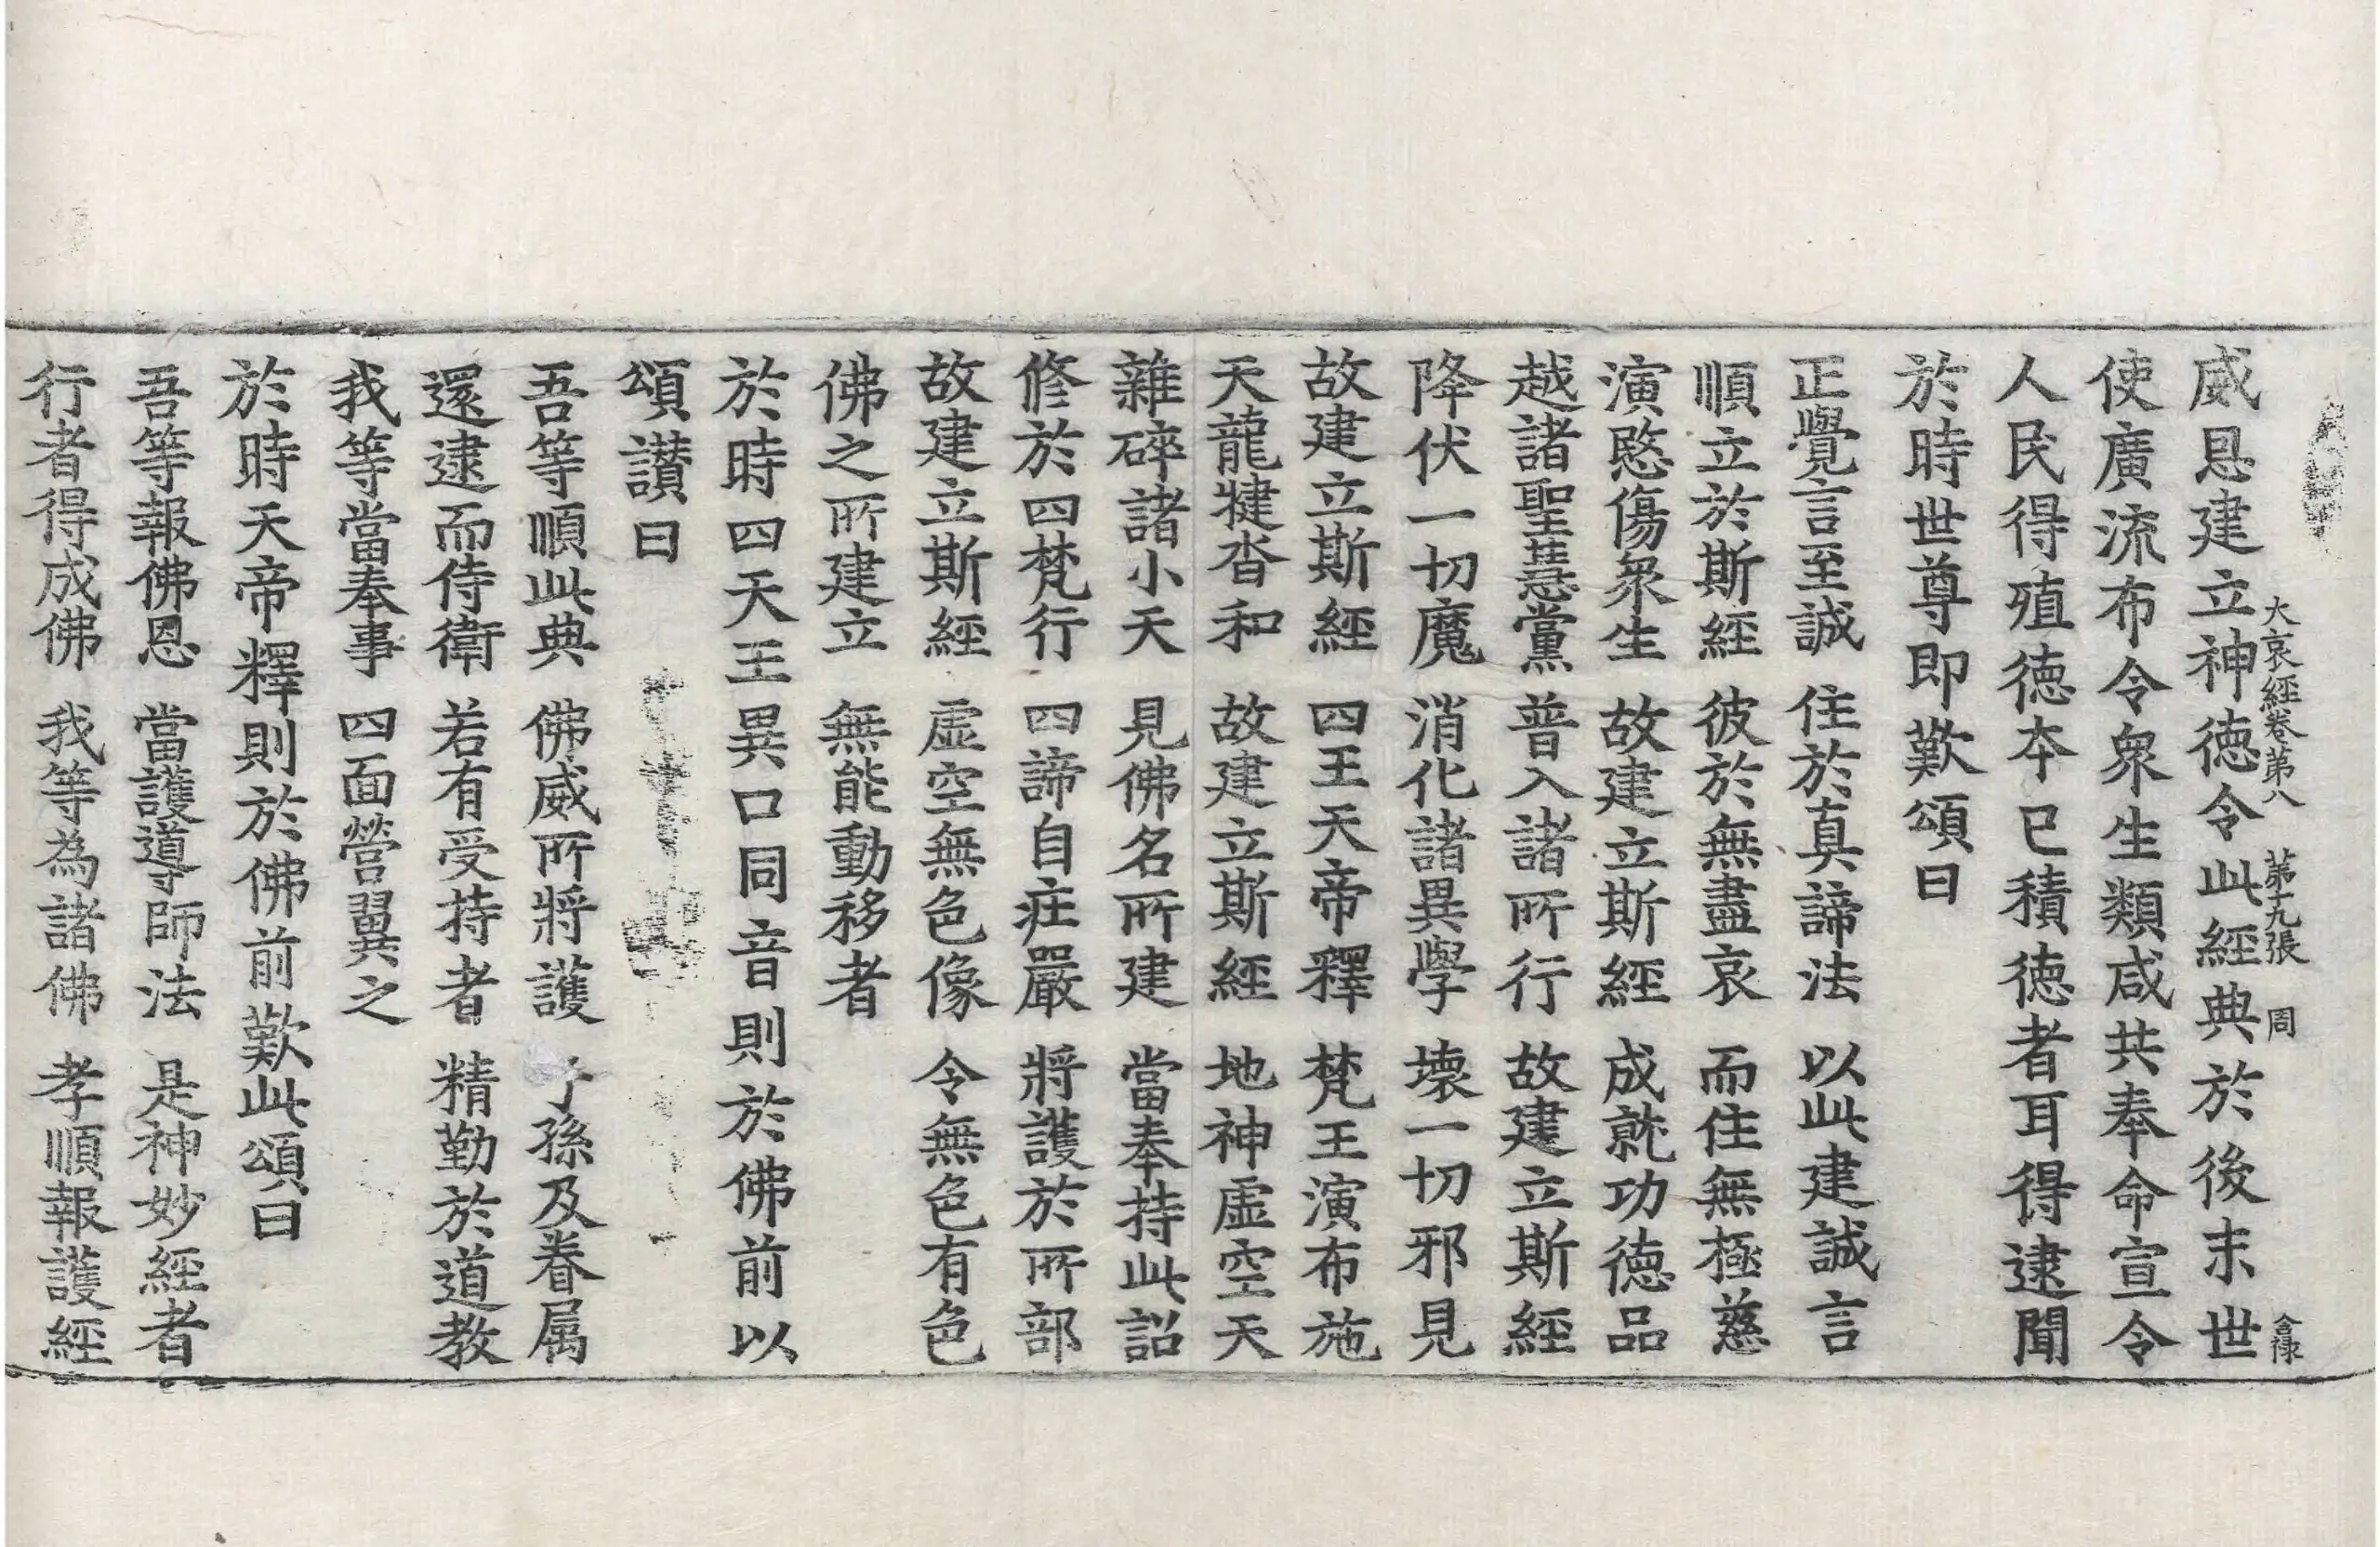 大哀經卷第八　第十九張　周　含祿
威恩建立神德令此經典於後末世
使廣流布令衆生類咸共奉命宣令
人民得殖德本已積德者耳得逮聞
於時世尊即歎頌曰
正覺言至誠　住於真諦法　以此建誠言
順立於斯經　彼於無盡哀　而住無極慈
演愍傷衆生　故建立斯經　成就功德品
越諸聖慧黨　普入諸所行　故建立斯經
降伏一切魔　消化諸異學　壞一切邪見
故建立斯經　四王天帝釋　梵王演布施
天龍犍沓和　故建立斯經　地神虛空天
雜碎諸小天　見佛名所建　當奉持此詔
修於四梵行　四諦自庄嚴　將護於所部
故建立斯經　虛空無色像　令無色有色
佛之所建立　無能動移者
於時四天王異口同音則於佛前以
頌讃曰
吾等順此典　佛威所將護　子孫及眷属
還逮而侍衛　若有受持者　精勤於道教
我等當奉事　四面營翼之
於時天帝釋則於佛前歎此頌曰
吾等報佛恩　當護導師法　是神妙經者
行者得成佛　我等為諸佛　孝順報護經